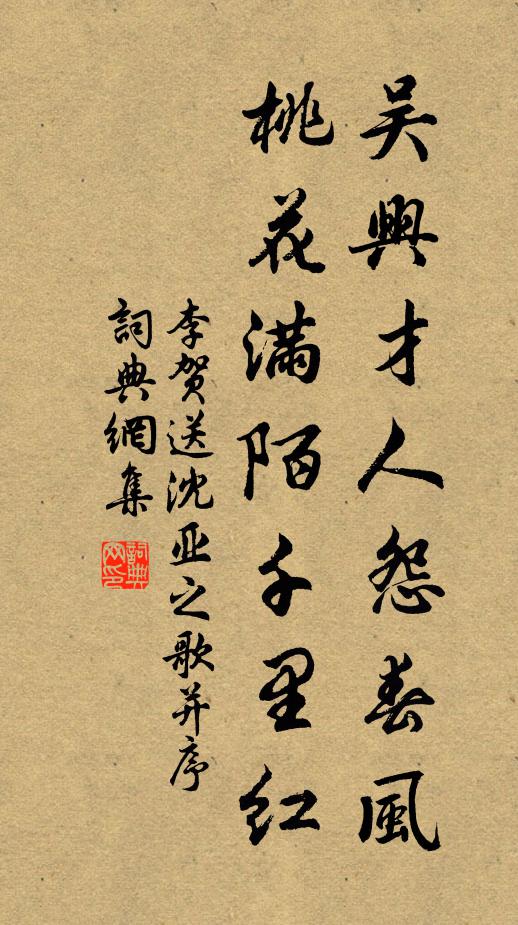 吴興才人怨春風
桃花滿陌千里红
李贺送沈亚之歌并序
詞典網集
詞典網印